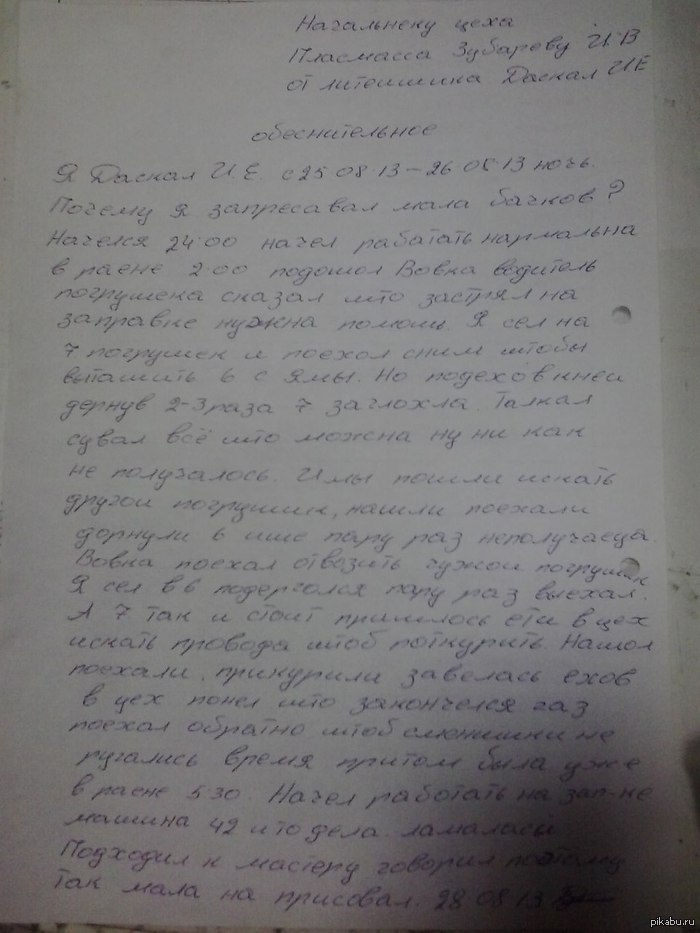 Начальнеку цеха
Пласмасса Зубарову И В
от литеишика Даскал И Е
обеснительное
Я Даскал И Е. с 25 08.13 – 26 08.13 ночь.
Почему я запресавал мала бачков?
Начелся 24:00 начел рабатать нармальна
в раене 2:00 подошол Вовка водитель
погрушека сказал што застрял на
заправке нужна помошь. Я сел на
7 погрушек и поехол сним штобы
выташить 6 с Ямы. Но подехов кнеи
дернув 2-3 раза 7 заглохла. Талкал
сувал всё што можна ну ни как
не получалось. И мы пошли искать
другои погрушик, нашли поехали
дорнули 6 ише пару раз неполучаеца
Вовка поехал отвозить чужои погрушик
Я сел в 6 подерголся пару раз выехал.
А 7 так и стоит пришлось ети в цех
искать провода штоб роткурить. Нашол
поехали. прикурили завелась ехов
в цех понел што закончелся газ
поехал обратно штоб сменшики не
ругались время притом была уже
в раене 5:30. Начел работать на зап-ке
машина 42 што дела. ламалась
Подходил к мастеру говорил поэтому
так мала на присовал. 28 08 13
pikabu.ru